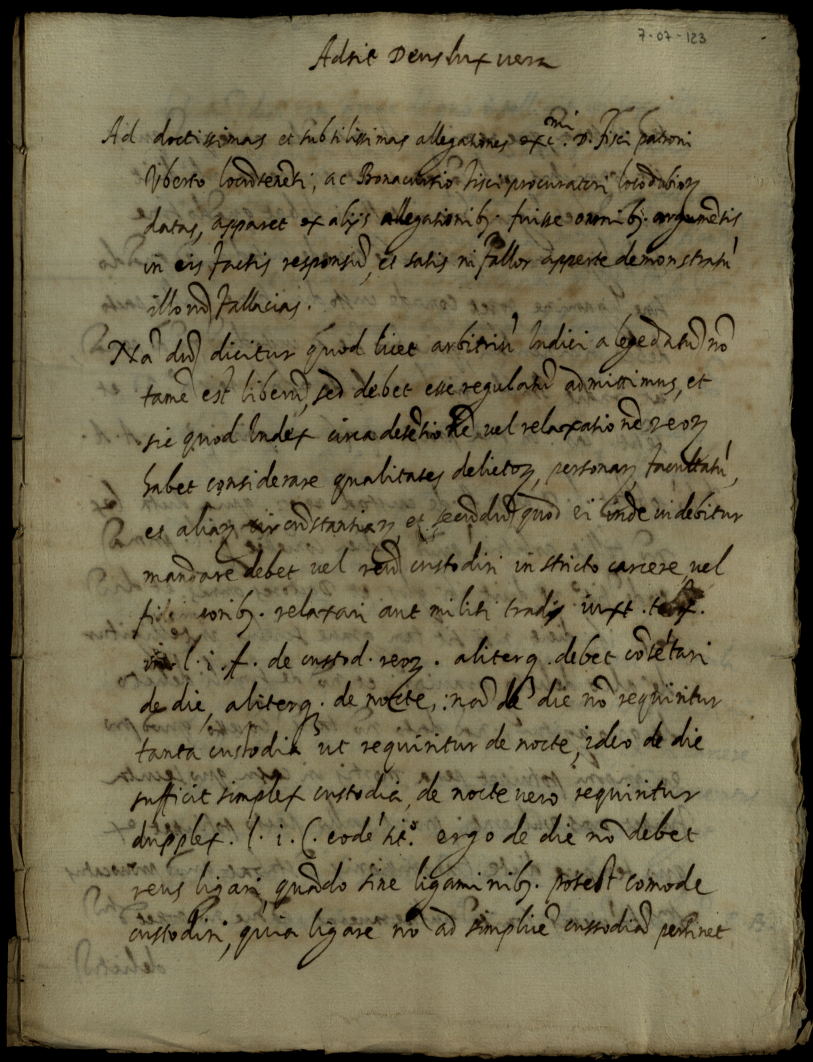 7-07-123
Adsit Deus lux vera
Ad doctissimas et subtilissimas allegationes exc.mi D. fisci patroni
Vberto locũtenẽti, ac
datas, apparet ex alijs allegationib9. fuisse omnib9. argumẽtis
in eis factis responsũ, et satis ni fallor apperte demonstratũ
illorũ fallacias.
Nã dũ dicitur quod licet arbitriũ Iudici a lege datũ nõ
tamẽ est liberũ, sed debet esse regulatũ admittimus, et
sic quod Iudex circa detẽtionẽ vel relaxationẽ reoꝝ
habet considerare qualitates delictoꝝ, personaꝝ, facultatũ,
et aliaꝝ circũstantiaꝝ, et secũdũ quod ei inde videbitur
mandare debet vel reũ custodiri in stricto carcere, vel
relaxari aut militi tradi iuxt.
l. i. ff. de custod. reoꝝ. aliterq. debet
de die, aliterq. de nocte, nã de die nõ requiritur
tanta custodia ut requiritur de nocte, ideo de die
sufficit simplex custodia, de nocte vero requiritur
dupplex. l. i. C. eodẽ tit.o ergo de die nõ debet
reus ligari, quãdo sine ligaminib9. potest comode
custodiri, quia ligare nõ ad simplicẽ custodiã pertinet